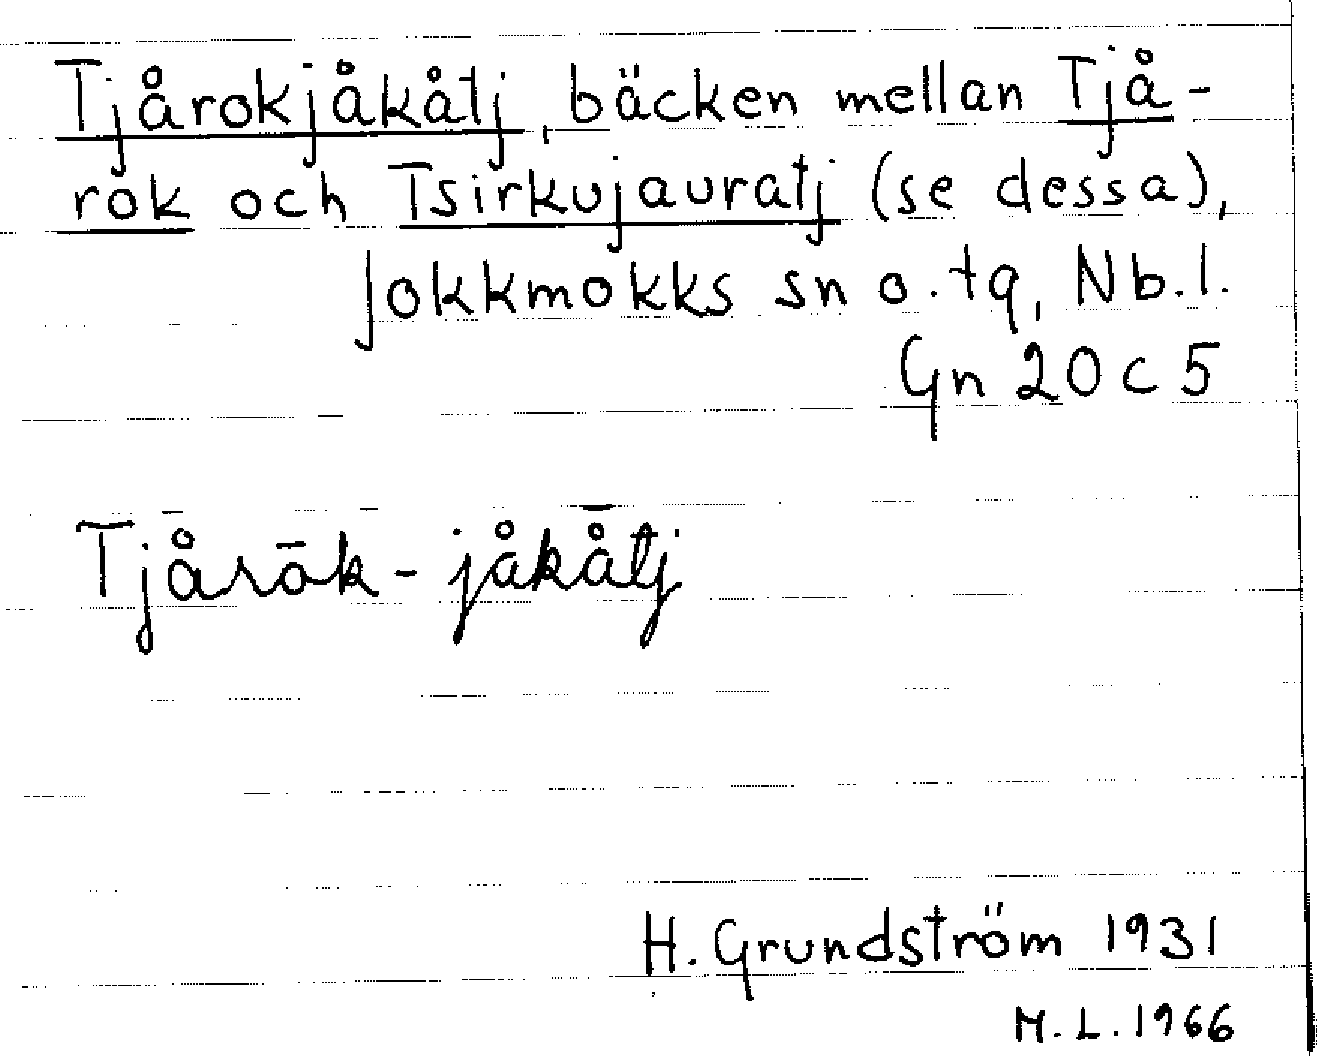 Tjårokjåkåtj, bäcken mellan Tjå-
rok och Tsirkujauratj (se dessa),
Jokkmokks sn o. tg, Nb. l.
Gn 20 c 5
Tjårōk-jåkåtj
H. Grundström 1931
M. L. 1966